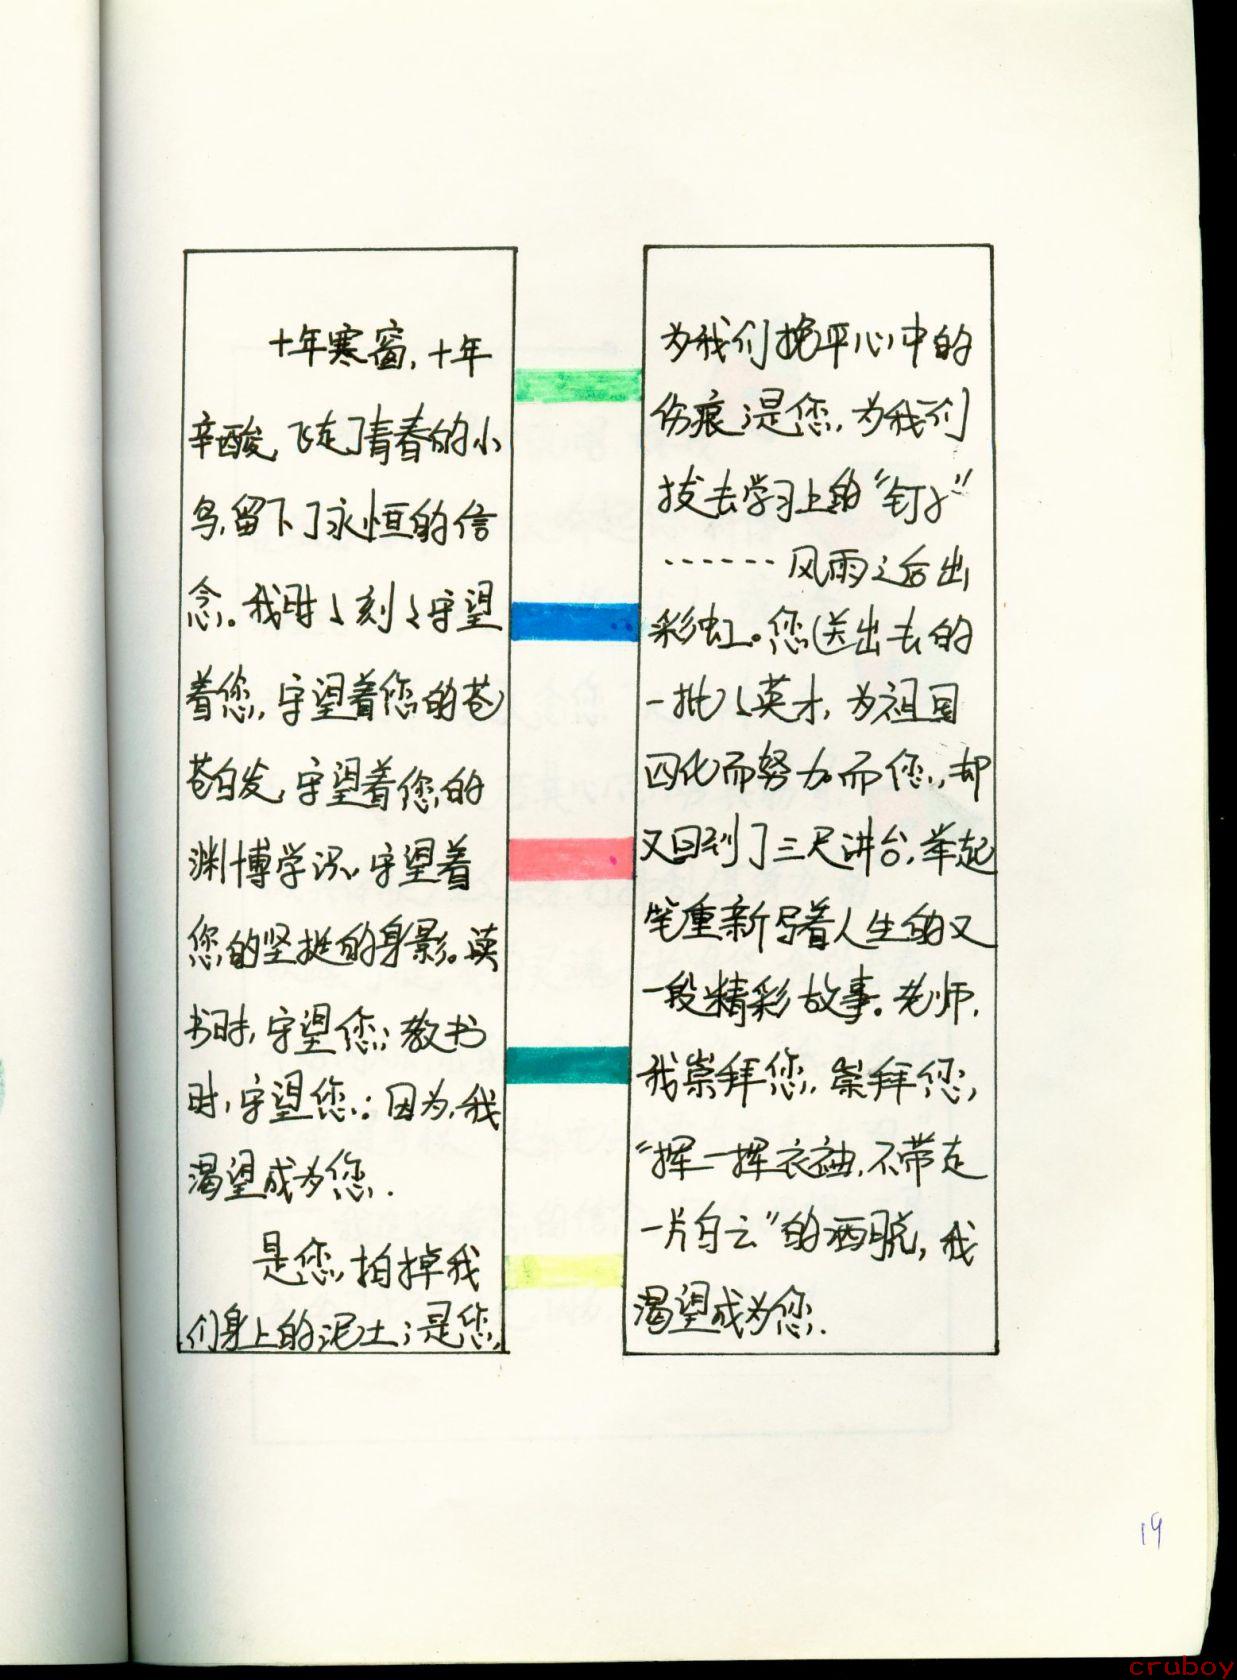 十年寒窗，十年
辛酸，飞走了青春的小
鸟，留下了永恒的信
念。我时々刻々守望
着您，守望着您的苍
苍白发，守望着您的
渊博学识，守望着
您的坚挺的身影。读
书时，守望您；教书
时，守望您；因为，我
渴望成为您．
是您，拍掉我
们身上的泥土；是您，
为我们挽平心中的
伤痕；是您，为我们
拔去学习上的“钉子”
……风雨之后出
彩虹。您送出去的
一批々英才，为祖国
四化而努力。而您，却
又回到了三尺讲台，举起
笔重新写着人生的又
一段精彩故事。老师，
我崇拜您，崇拜您，
“挥一挥衣袖，不带走
一片白云”的洒脱，我
渴望成为您．
19
cruboy